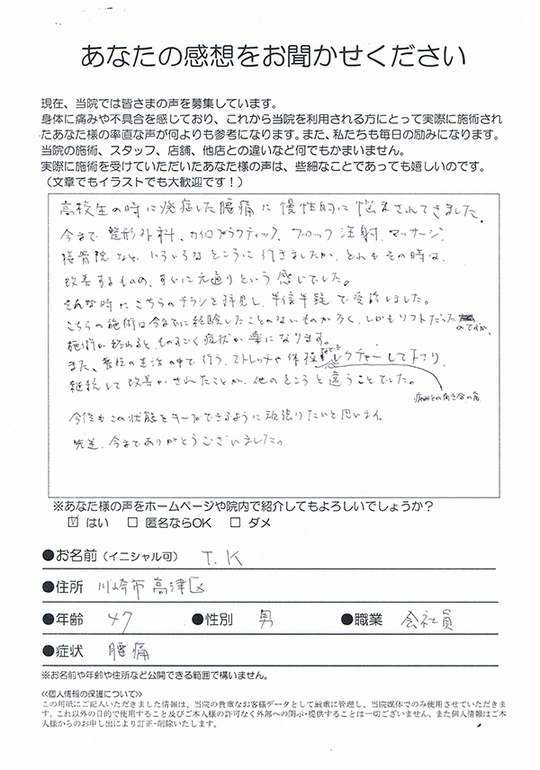 あなたの感想をお聞かせください
現在、当院では皆さまの声を募集しています。
身体に痛みや不具合を感じており、これから当院を利用される方にとって実際に施術され
たあなた様の率直な声が何よりも参考になります。また、私たちも毎日の励みになります。
当院の施術、スタッフ、店舗、他店との違いなど何でもかまいません。
実際に施術を受けていただいたあなた様の声は、些細なことであっても嬉しいのです。
（文章でもイラストでも大歓迎です！）
高校生の時に発症した腰痛に慢性的に悩まされてきました。
今まで整形外科、カイロプラクティック、ブロック注射、マッサージ、
接骨院など、いろいろなところに行きましたが、どれもその時は
改善するものの、すぐに元通りという感じでした。
そんな時にこちらのチラシを拝見し、半信半疑で受診しました。
こちらの施術は今までに経験したことのないものが多く、しかもソフトだったのですが、
施術が終わると、ものすごく症状が楽になります。
また、普段の生活の中で行う、ストレッチや体操などをレクチャーして下さり、
痛みとの向き合い方
継続して改善がされたことが、他のところと違うことでした。
今後もこの状態をキープできるように頑張りたいと思います。
先生、今までありがとうございました。
※あなた様の声をホームページや院内で紹介してもよろしいでしょうか？
☑ はい □ 匿名ならOK □ ダメ
●お名前（イニシャル可） T.K
●住所 川崎市高津区
●年齢 47 ●性別 男 ●職業 会社員
●症状 腰痛
※お名前や年齢や住所など公開できる範囲で構いません。
≪個人情報の保護について≫
この用紙にご記入いただきました情報は、当院の貴重なお客様データとして厳重に管理し、当院媒体でのみ使用させていただきま
す。これ以外の目的で使用すること及びご本人様の許可なく外部への開示・提供することは一切ございません。また個人情報はご本
人様からのお申し出により訂正・削除いたします。